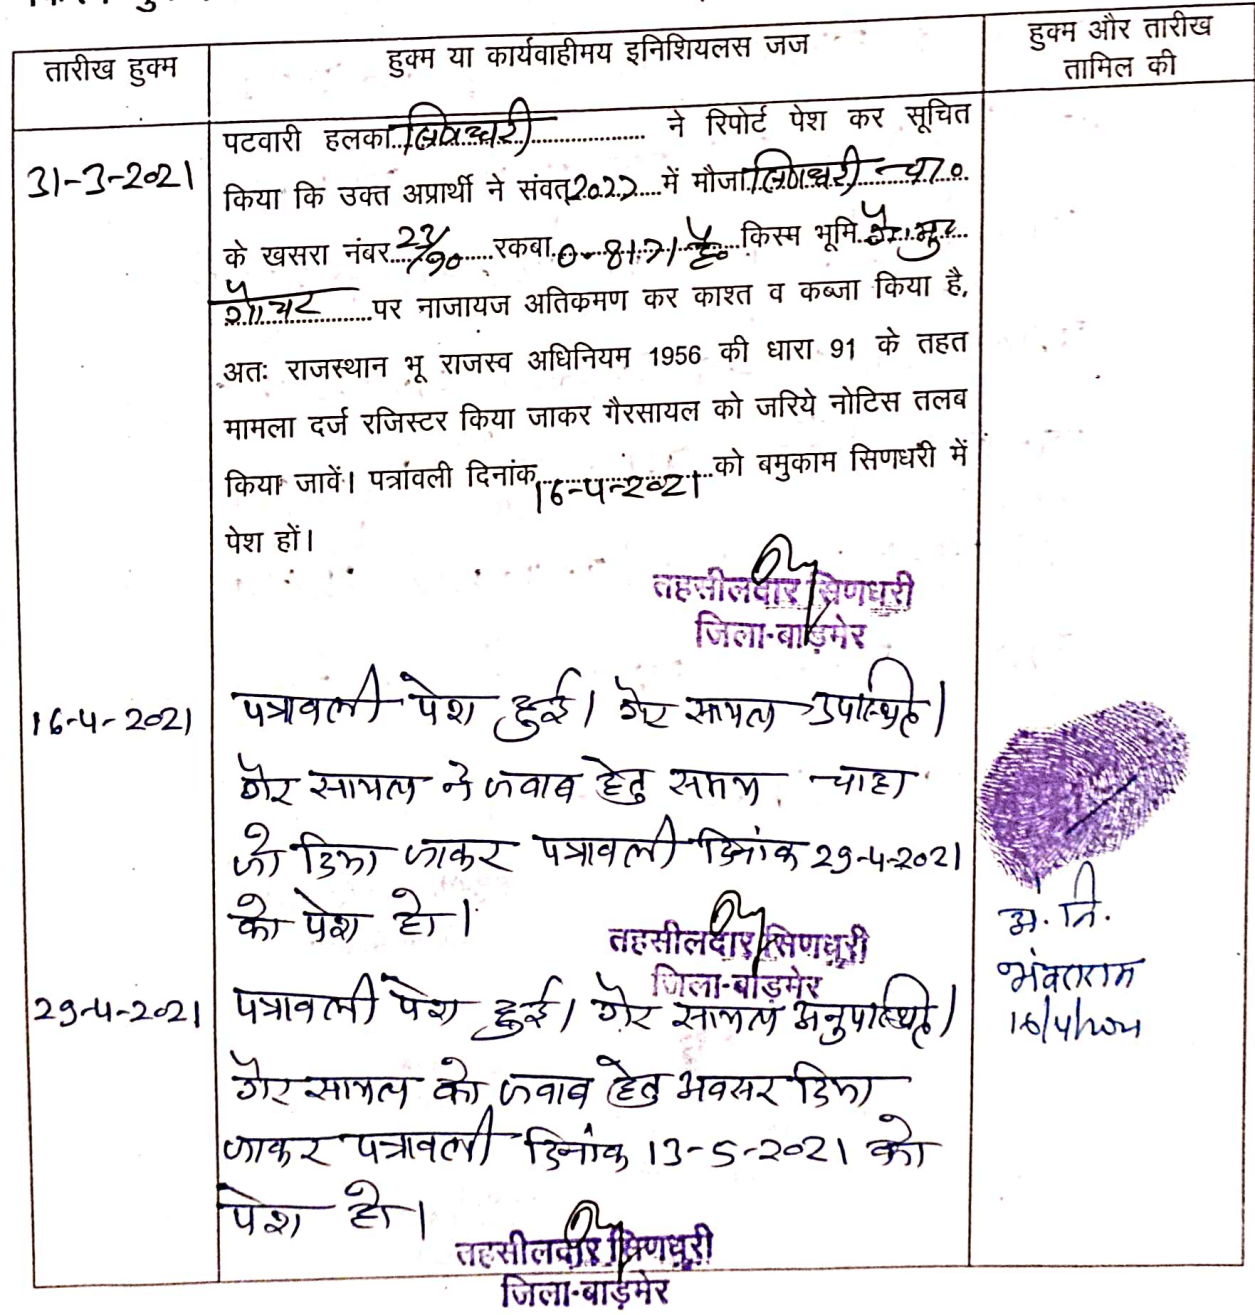 तारीख हुक्म
हुक्म या कार्यवाहीमय इनिशियलस जज
हुक्म और तारीख
तामिल की
31-3-2021
पटवारी हलका सिणधरी ने रिपोर्ट पेश कर सूचित
किया कि उक्त अप्रार्थी ने संवत् 2077 में मौजा सिणधरी चा०
के खसरा नंबर रकबा 0-8171 है० किस्म भूमि गै. मु.
गोचर पर नाजायज अतिकमण कर काश्त व कब्जा किया है,
अतः राजस्थान भू राजस्व अधिनियम 1956 की धारा 91 के तहत
मामला दर्ज रजिस्टर किया जाकर गैरसायल को जरिये नोटिस तलब
किया जावें। पत्रांवली दिनांक 16-4-2021 को बमुकाम सिणधरी में
पेश हों।
तहसीलदार सिणधरी
जिला-बाड़मेर
16-4-2021
पत्रावली पेश हुई। गैर सायल उपस्थित।
गैर सायल ने जवाब हेतु समय चाहा
जो दिया जाकर पत्रावली दिनांक 29-4-2021
को पेश हो।
तहसीलदार सिणधरी
जिला-बाड़मेर
अं. नि.
भंवराराम
16/4/2021
29-4-2021
पत्रावली पेश हुई। गैर सायल अनुपस्थित।
गैर सायल को जवाब हेतु अवसर दिया
जाकर पत्रावली दिनांक 13-5-2021 को
पेश हो।
तहसीलदार सिणधरी
जिला-बाड़मेर